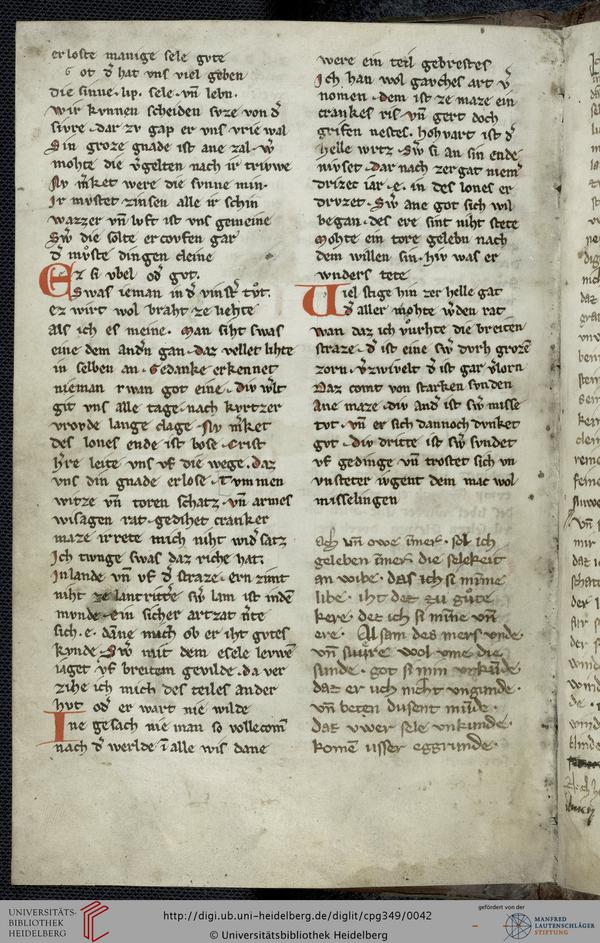 erloste manige sele gvte
Got d̾ hat vns viel geben
die sinne · lip · sele · vn̄ lebn ·
wir kvnnen scheiden svze von d̾
sivre · dar zv gap er vns vrie wal
Sin groze gnade ist ane zal · w̾
mohte die v̾gelten nach ir trivwe
Nv m̾ket were die svnne min ·
Ir mvstet zinsen alle ir schin
wazzer vn̄ lvft ist vns gemeine
Sw̾ die solte ercovfen gar
d̾ mvste dingen cleine
Ez si vbel od̾ gvt ·
Swas ieman in d̾ vinst̾ tvt ·
ez wirt wol braht ze liehte
als ich es meine · man siht swas
eine dem and̾n gan · daz vellet lihte
in selben an · Gedanke erkennet
nieman wan got eine · div w̾lt
git vns alle tage · nach kvrtzer
vrovde lange clage · Nv m̾ket
des lones ende ist bose · Crist
h̾re leite vns vf die wege · daz
vns din gnade erlose · Tvmmen
witze vn̄ toren schatz · vn̄ armes
wisagen rat · gedihet cranker
maze irrete mich niht wid̾ satz
Ich twnge swas daz riche hat ·
In lande vn̄ vf d̾ straze · ern zimt
niht ze lantritt̾e sw̾ lam ist
mvnde · ein sicher artzat
sich · e · dāne mich ob er iht gvtes
kvnde · Sw̾ mit dem esele lerwē
iaget vf breitem gevilde · da ver
zihe ich mich des teiles an der
hvt od̾ er wart nie wilde
Ine gesach nie man so vollecom̄
nach d̾ werlde ī alle wis dane
were ein teil gebrestes
Ich han wol garches art v̾
nomen · dem ist ze maze ein
crankes ris · vn̄ gert doch
grifen nestes · hohvart ist d̾
helle wrtz · Sw̾ si an sin ende
nivset · dar nach zergat niem̾
drizec iar · e · in des lones er
drvzet · Sw̾ ane got sich wil
began · des ere sint niht stete
Mohte ein tore gelebn nach
dem willen sin · hiv was er
wnders tete
Viel stige hin zer helle gat
d̾ aller mohte w̾den rat
wan daz ich vurhte die breiten
straze · d̾ ist eine sw̾ dvrh grozē
zorn · v̾zwivelt d̾ ist gar v̾lorn
Daz comt von starken svnden
Ane maze · div and̾ ist sw̾ misse
tvt · vn̄ er sich dannoch dvnket
gvt · div dritte ist sw̾ svndet
vf gedinge vn̄ trostet sich vn
vnsteter ivgent dem mac wol
misselingen
ach vn̄ owe im̄er · sol ich
geleben im̄er die selekeit
an wibe · das ich si minne
libe · iht det zu gůte
kere · det ich si mine vn̄
ere · Alsam des mers vnde
vn̄ suure wol vme die
sunde · got si min vrkūde
daz er uch nicht vngunde ·
vn̄ beten dusent mūde ·
daz vwer sele vnkunde ·
komē usser eggrunde ·
UNIVERSITÄTS-
BIBLIOTHEK
HEIDELBERG
http://digi.ub.uni-heidelberg.de/diglit/cpg349/0042
© Universitätsbibliothek Heidelberg
gefördert von der
MANFRED
LAUTENSCHLÄGER
STIFTUNG